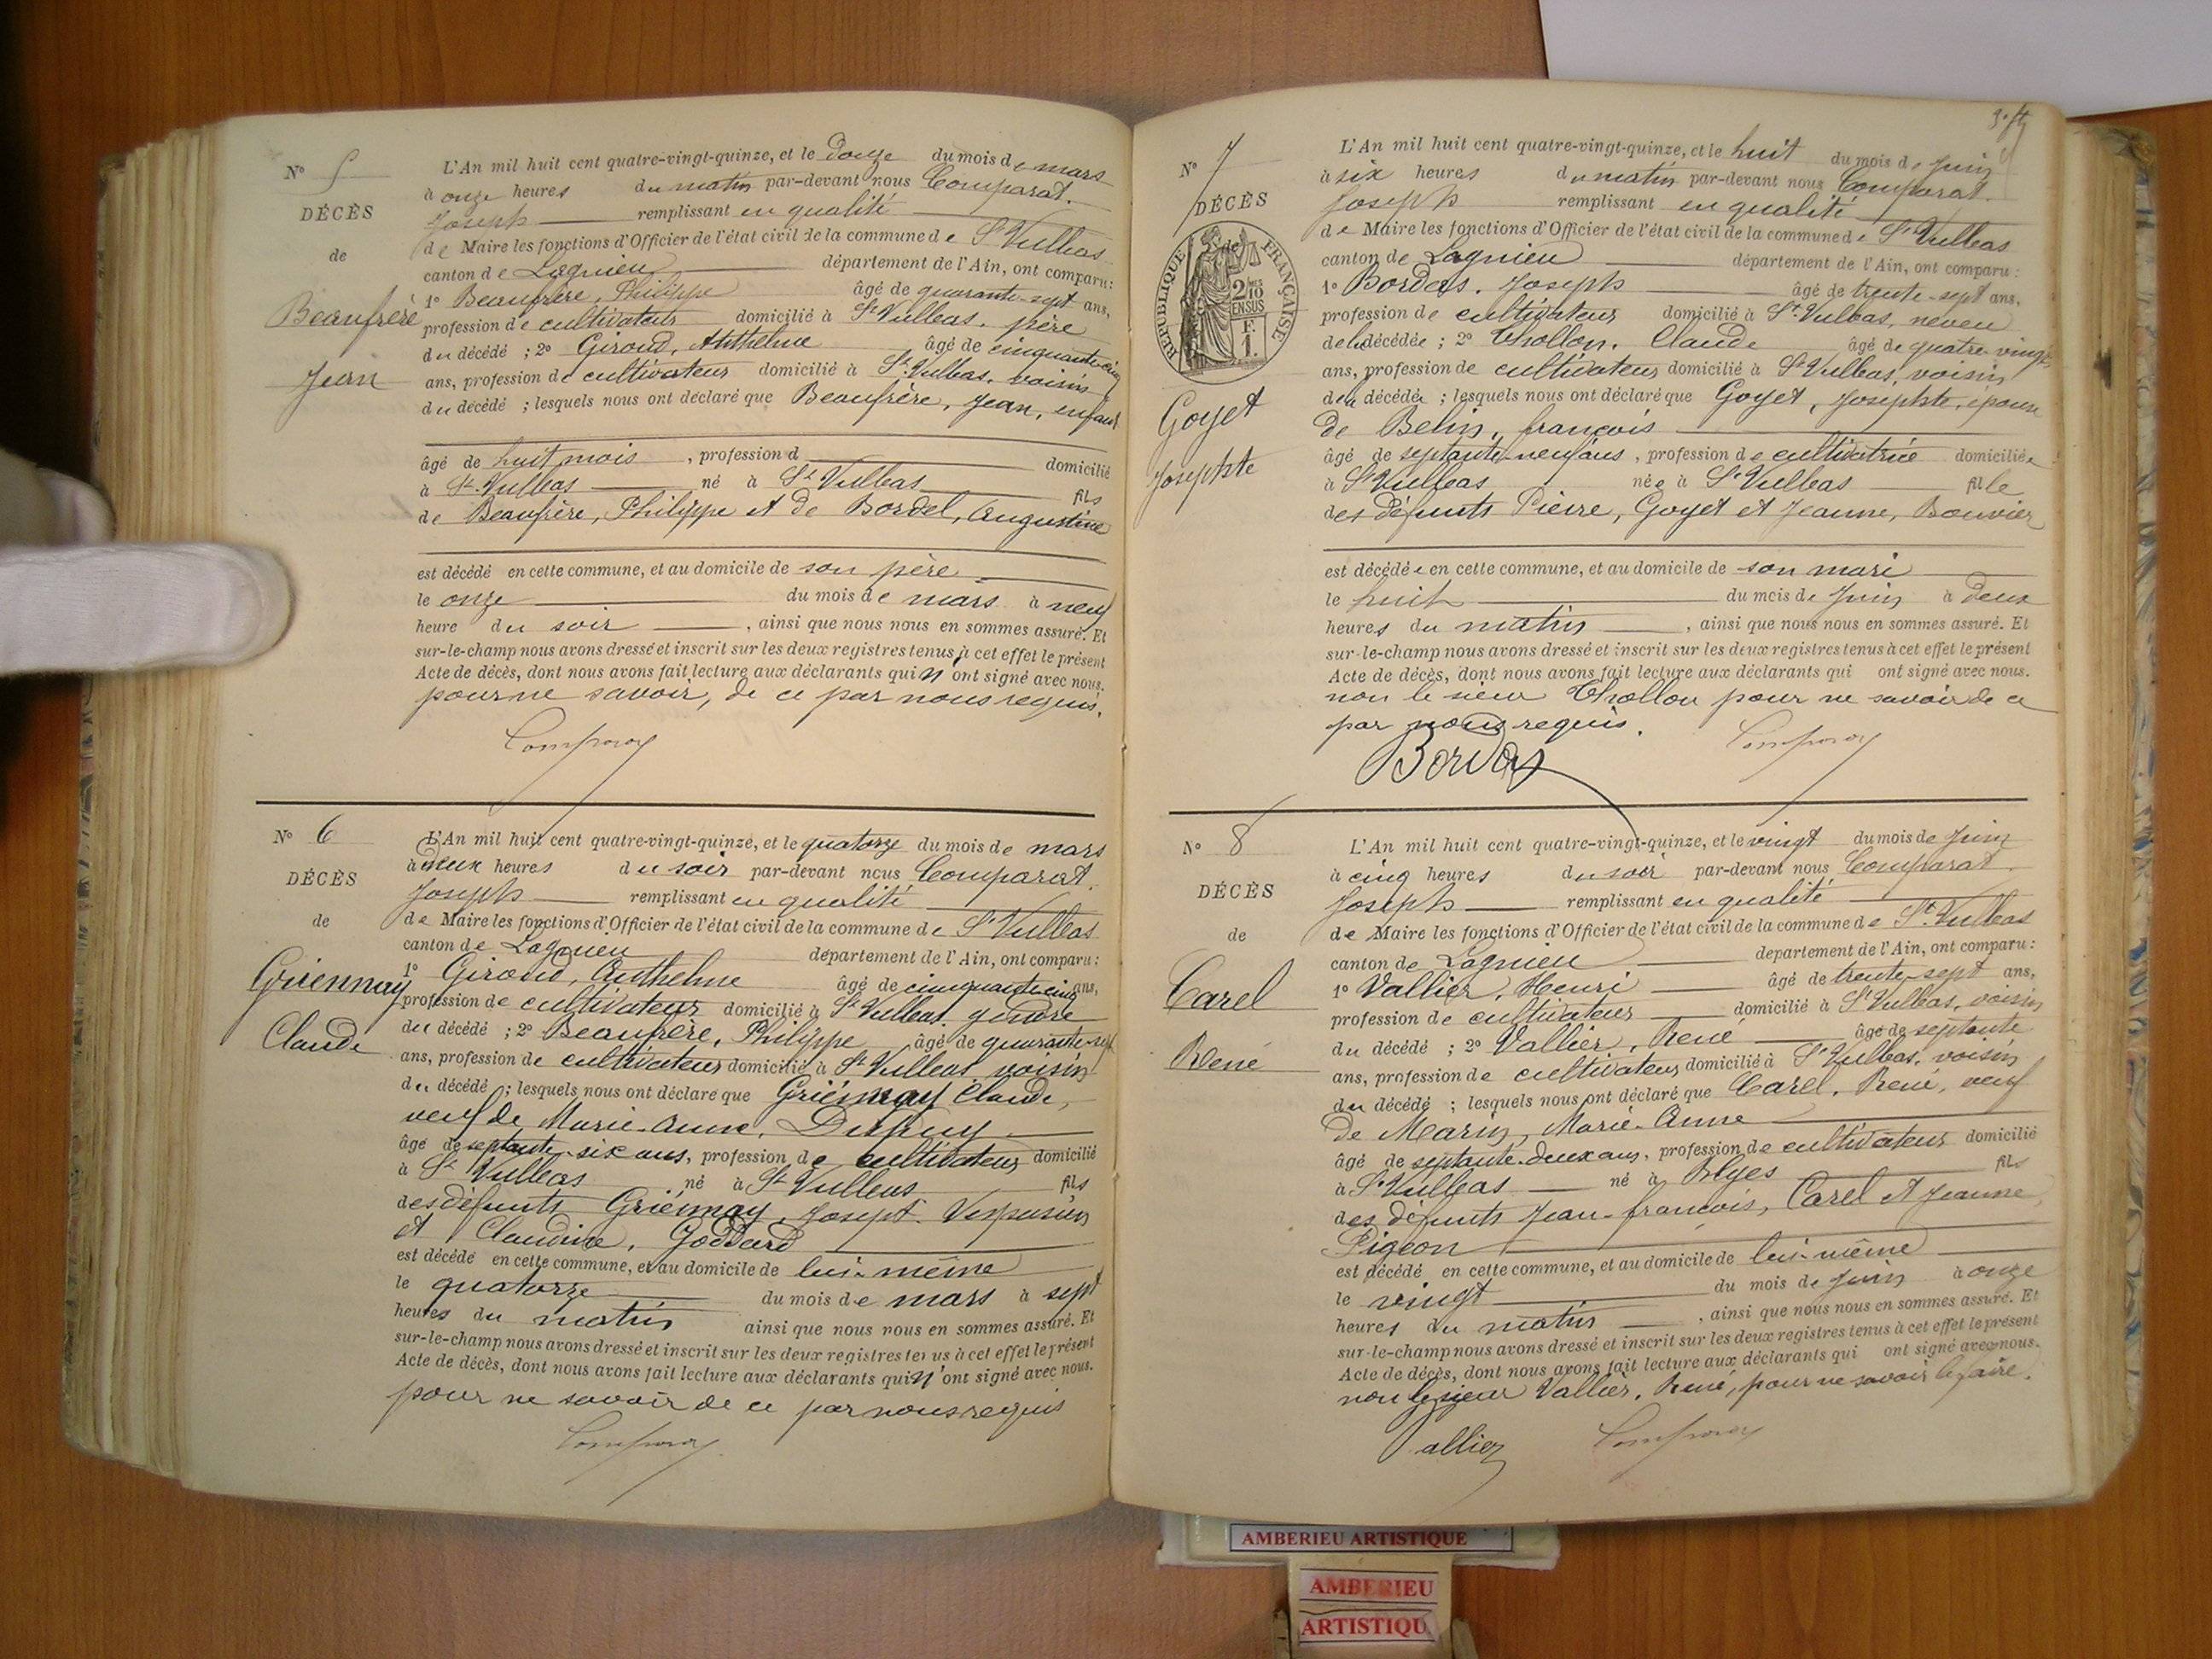 N° 5
DÉCÈS
de
Beaufrère
Jean
L'An mil huit cent quatre-vingt-quinze, et le douze du mois de mars
à onze heures du matin par-devant nous Comparat.
Joseph remplissant en qualité
de Maire les fonctions d'Officier de l'état civil de la commune de St Vulbas
canton de Lagnieu département de l'Ain, ont comparu :
1° Beaufrère, Philippe âgé de quarante-sept ans,
profession de cultivateur domicilié à St Vulbas. père
du décédé ; 2° Giroud, Anthelme âgé de cinquante-cinq
ans, profession de cultivateur domicilié à St Vulbas. voisin
du décédé ; lesquels nous ont déclaré que Beaufrère, Jean, enfant
âgé de huit mois , profession d domicilié
à St Vulbas né à St Vulbas fils
de Beaufrère, Philippe et de Bordel, Augustine
est décédé en cette commune, et au domicile de son père
le onze du mois de mars à neuf
heure du soir , ainsi que nous nous en sommes assuré. Et
sur-le-champ nous avons dressé et inscrit sur les deux registres tenus à cet effet le présent
Acte de décès, dont nous avons fait lecture aux déclarants qui n'ont signé avec nous.
pour ne savoir, de ce par nous requis.
N° 6
DÉCÈS
de
Griennay
Claude
L'An mil huit cent quatre-vingt-quinze, et le quatorze du mois de mars
à deux heures du soir par-devant nous Comparat.
Joseph remplissant en qualité
de Maire les fonctions d'Officier de l'état civil de la commune de St Vulbas
canton de Lagnieu département de l'Ain, ont comparu :
1° Giroud, Anthelme âgé de cinquante cinq ans,
profession de cultivateur domicilié à St Vulbas. gendre
du décédé ; 2° Beaufrère, Philippe âgé de quarante-sept
ans, profession de cultivateur domicilié à St Vulbas voisin
du décédé ; lesquels nous ont déclaré que Griennay Claude,
veuf de Marie-Anne, Dupuy
âgé de septante-six ans, profession de cultivateur domicilié
à St Vulbas né à St Vulbas fils
des défunts Griennay, Joseph Vespasien
et Claudine, Goddard
est décédé en cette commune, et au domicile de lui-même
le quatorze du mois de mars à sept
heures du matin ainsi que nous nous en sommes assuré. Et
sur-le-champ nous avons dressé et inscrit sur les deux registres tenus à cet effet le présent
Acte de décès, dont nous avons fait lecture aux déclarants qui n'ont signé avec nous.
pour ne savoir de ce par nous requis
N° 7
DÉCÈS
de
RÉPUBLIQUE FRANÇAISE
2/10 EN SUS
F. 1.
Goyet
Josephte
L'An mil huit cent quatre-vingt-quinze, et le huit du mois de Juin
à six heures du matin par-devant nous Comparat.
Joseph remplissant en qualité
de Maire les fonctions d'Officier de l'état civil de la commune de St Vulbas
canton de Lagnieu département de l'Ain, ont comparu :
1° Bordas. Joseph âgé de trente-sept ans,
profession de cultivateur domicilié à St Vulbas, neveu
de la décédée ; 2° Thollon. Claude âgé de quatre-vingts
ans, profession de cultivateur domicilié à St Vulbas, voisin
de la décédée ; lesquels nous ont déclaré que Goyet, Josephte, épouse
de Belin, françois
âgé de septante-neuf ans, profession de cultivatrice domiciliée
à St Vulbas née à St Vulbas fille
des défunts Pierre, Goyet et Jeanne, Bouvier
est décédée en cette commune, et au domicile de son mari
le huit du mois de Juin à deux
heures du matin , ainsi que nous nous en sommes assuré. Et
sur-le-champ nous avons dressé et inscrit sur les deux registres tenus à cet effet le présent
Acte de décès, dont nous avons fait lecture aux déclarants qui ont signé avec nous.
non le sieur Thollon pour ne savoir de ce
par nous requis.
Bordas
N° 8
DÉCÈS
de
Carel
René
L'An mil huit cent quatre-vingt-quinze, et le vingt du mois de Juin
à cinq heures du soir par-devant nous Comparat.
Joseph remplissant en qualité
de Maire les fonctions d'Officier de l'état civil de la commune de St Vulbas
canton de Lagnieu département de l'Ain, ont comparu :
1° Vallier, Henri âgé de trente-sept ans,
profession de cultivateur domicilié à St Vulbas, voisin
du décédé ; 2° Vallier, René âgé de septante
ans, profession de cultivateur domicilié à St Vulbas, voisin
du décédé ; lesquels nous ont déclaré que Carel, René, veuf
de Marin, Marie-Anne
âgé de septante-deux ans, profession de cultivateur domicilié
à St Vulbas né à Blyes fils
des défunts Jean-françois, Carel et Jeanne,
Pigeon
est décédé en cette commune, et au domicile de lui-même
le vingt du mois de Juin à onze
heures du matin , ainsi que nous nous en sommes assuré. Et
sur-le-champ nous avons dressé et inscrit sur les deux registres tenus à cet effet le présent
Acte de décès, dont nous avons fait lecture aux déclarants qui ont signé avec nous.
non le sieur Vallier, René, pour ne savoir le faire.
Vallier
AMBERIEU ARTISTIQUE
AMBERIEU
ARTISTIQU